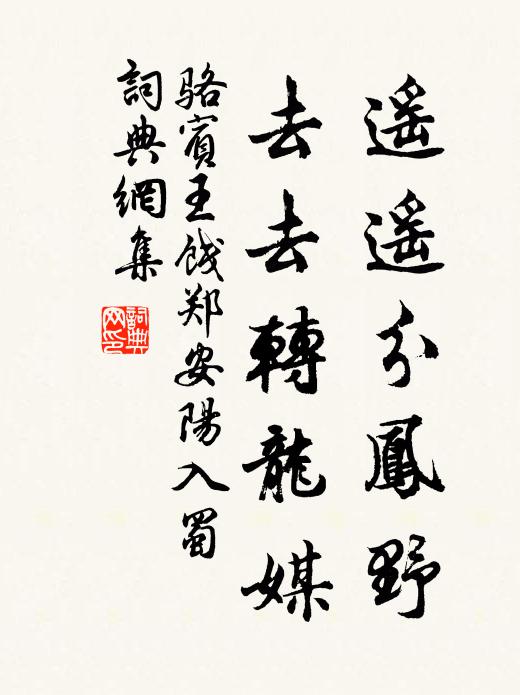 遥遥分鳳野
去去轉龍媒
骆賓王餞郑安陽入蜀
詞典網集
詞典网印